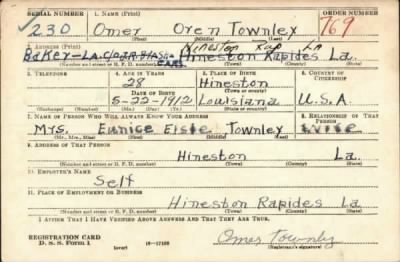 SERIAL NUMBER 1. NAME (Print) ORDER NUMBER
230 Omer Oren Townley 769
(First) (Middle) (Last)
2. ADDRESS (Print) Hineston Rap La
Baker-La. Hineston Rapides La.
(Number and street or R. F. D. number) (Town) (County) (State)
3. TELEPHONE 4. AGE IN YEARS 5. PLACE OF BIRTH 6. COUNTRY OF CITIZENSHIP
28 Hineston
DATE OF BIRTH (Town or county)
5-22-1912 Louisiana U.S.A.
(Exchange) (Number) (Mo.) (Day) (Yr.) (State or country)
7. NAME OF PERSON WHO WILL ALWAYS KNOW YOUR ADDRESS 8. RELATIONSHIP OF THAT PERSON
Mrs. Eunice Elsie Townley Wife
(Mr., Mrs., Miss) (First) (Middle) (Last)
9. ADDRESS OF THAT PERSON
Hineston La.
(Number and street or R. F. D. number) (Town) (County) (State)
10. EMPLOYER'S NAME
Self
11. PLACE OF EMPLOYMENT OR BUSINESS
Hineston Rapides La
(Number and street or R. F. D. number) (Town) (County) (State)
I AFFIRM THAT I HAVE VERIFIED ABOVE ANSWERS AND THAT THEY ARE TRUE.
REGISTRATION CARD Omer Townley
D. S. S. Form 1 (over) 16-17105 (Registrant's signature)